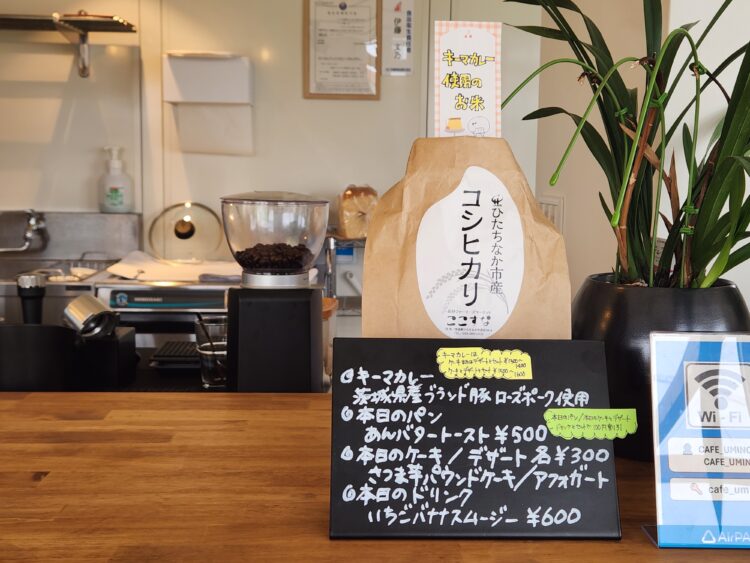 伊藤
キーマカレー
使用の
お米
ひたちなか市産
コシヒカリ
ここすな
キーマカレーは
◎キーマカレー
茨城県産ブランド豚 ローズポーク使用
◎本日のパン
あんバタートースト ¥500
◎本日のケーキ / デザート 各 ¥300
さつま芋パウンドケーキ/アフォガート
◎本日のドリンク
いちごバナナスムージー ¥600
Wi-Fi
CAFE_UMINO
CAFE_UM
cafe_um
AirPA